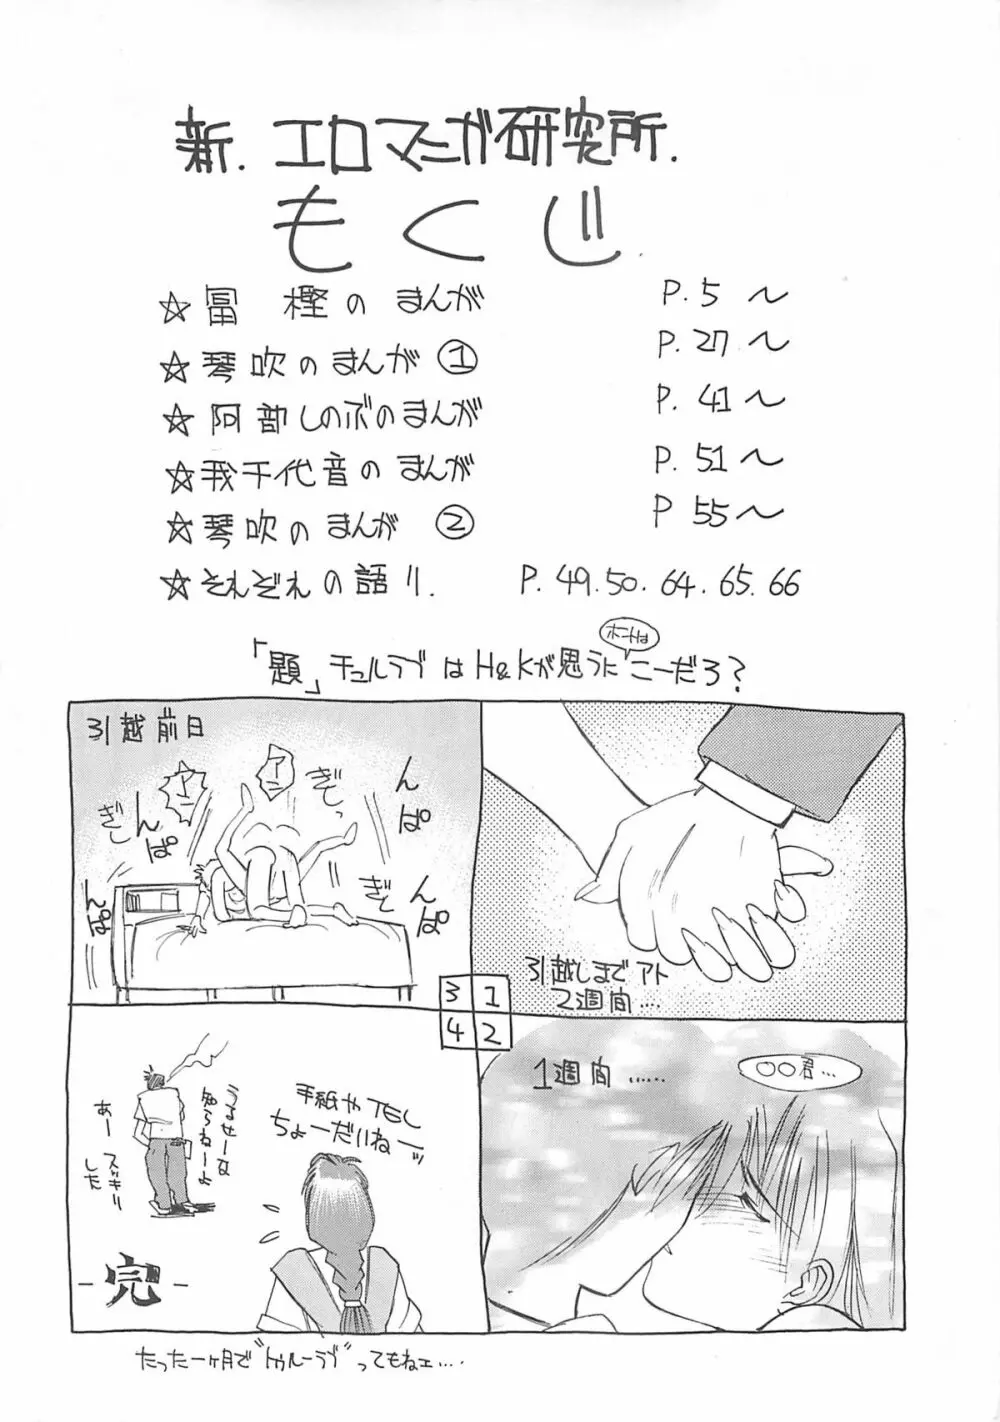 新.エロマニガ研究所.
もくじ
☆冨樫のまんが P.5〜
☆琴吹のまんが① P.27〜
☆阿部しのぶのまんが P.41〜
☆我千代音のまんが P.51〜
☆琴吹のまんが② P55〜
☆それぞれの語り. P.49.50.64.65.66
「題」チュルラブはH&Kが思うにこーだろ?
ホントは
1
引越しまでアト
2週間....
2
1週間......
○○君...
3
引越前日
アン
アン
ぎしっ
ぎし
ぎし
んぱんぱ
んぱんぱ
んぱ
んぱ
4
手紙やTEL
ちょーだいねーッ
うるせーな
知らねーよ
あー
スッキリ
した
-完-
たった一ヶ月で"トゥルーラブ"ってもねェ....